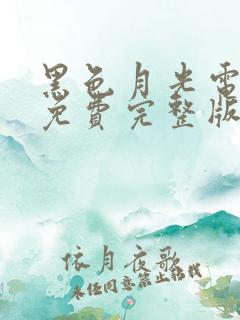 黑色月光電
免費完整版
依月夜歌
未經同意禁止轉載